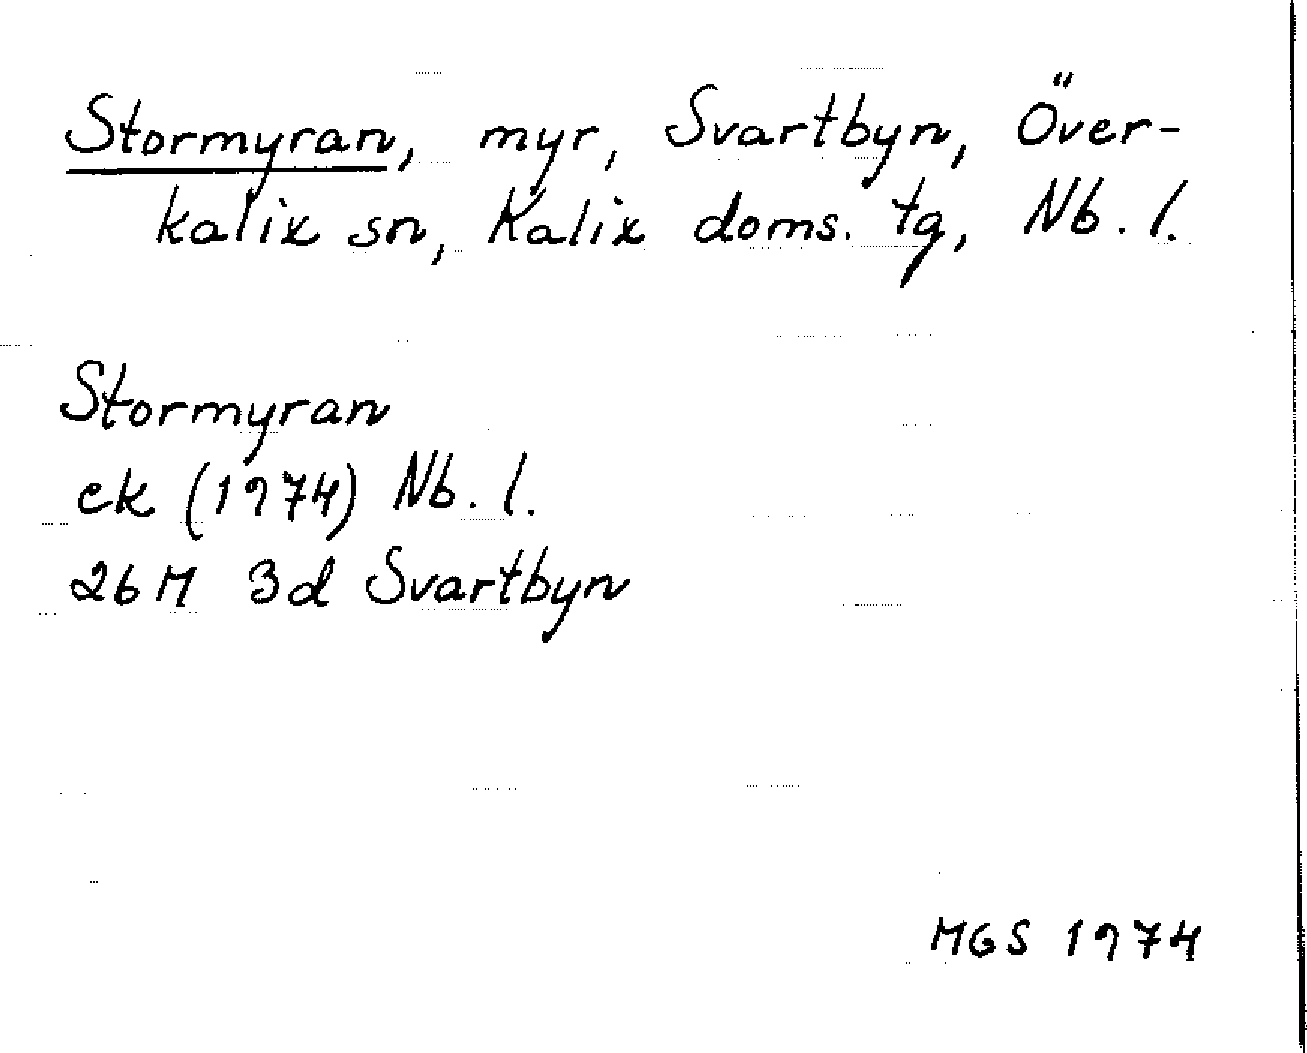 Stormyran, myr, Svartbyn, Över-
kalix sn, Kalix doms. tg, Nb. l.
Stormyran
ek (1974) Nb. l.
26M 3d Svartbyn
MGS 1974